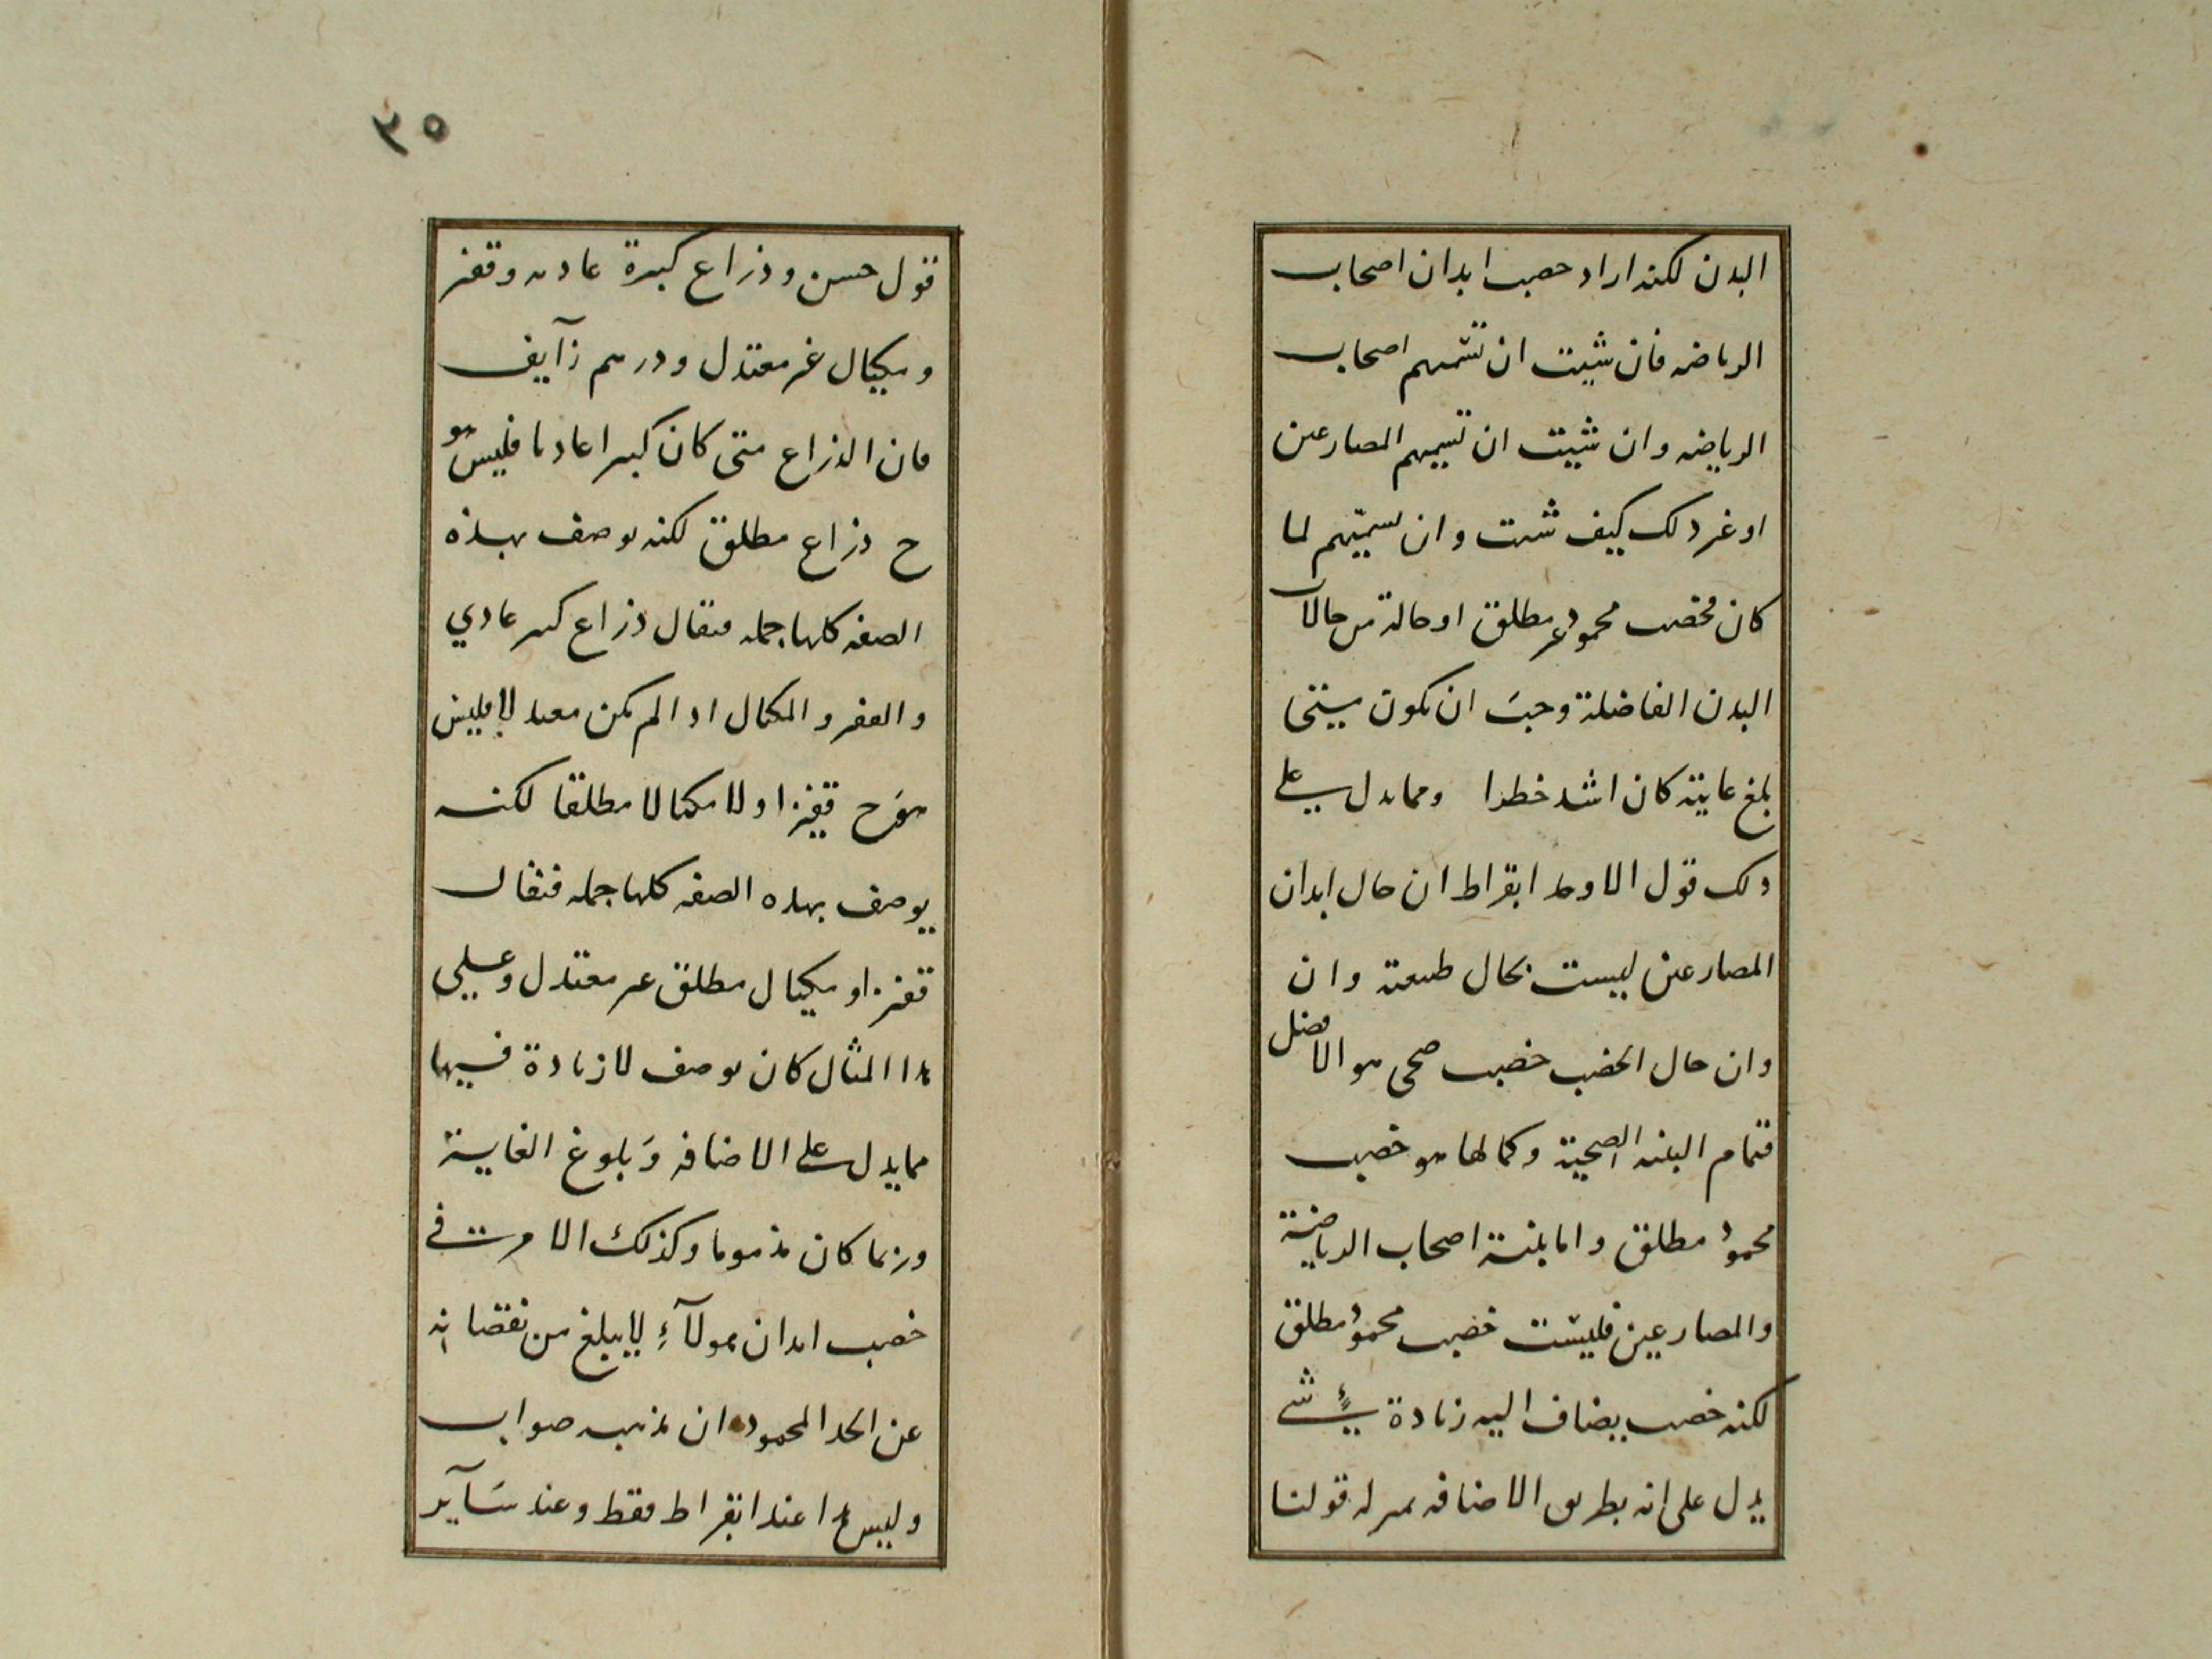 البدن لكنه اراد خصب ابدان اصحاب
الرياضه فان شيت ان تسميهم اصحاب
الرياضه وان شيت ان تسميهم المصارعين
او غير ذلك كيف شيت وان تسميتهم لما
كان مخصب محمود غير مطلق او حالة من حالات
البدن الفاضلة وجبَ ان يكون متى
بلغ غايته كان اشد خطرا ومما يدل على
ذلك قول الاوحد ابقراط ان حال ابدان
المصارعين ليست بحال طبيعته وان
وان حال الخصب خصب صحى هو الافضل
فتمام البنيه الصحية وكمالها هو خصب
محمود مطلق واما بنية اصحاب الرياضية
والمصارعين فليست خصب محمود مطلق
لكنه خصب يضاف اليه زيادة شيءٍ
يدل على انه بطريق الاضافه بمنزله قولنا
٣٥
قول حسن وذراع كبيرة عاديه وقفيز
ومكيال غير معتدل ودرهم زآيف
فان الذراع متى كان كبيرا عاديا فليس هو
ح ذراع مطلق لكنه يوصف بهذه
الصفه كلها جمله فيقال ذراع كبير عادي
والقفيز والمكيال اذا لم يكن معتدلا فليس
هو ح قفيزا ولا مكيالا مطلقا لكنه
يوصف بهذه الصفه كلها جمله فيقال
قفيز او مكيال مطلق غير معتدل وعلى
هذا المثال كان يوصف لا زيادة فيها
مما يدل على الاضافه وَبلوغ الغاية
وربما كان مذموما وكذلك الامر فى
خصب ابدان هولآءِ لا يبلغ من نقصانه
عن الحد المحمود ان مذهب صواب
وليس هذا عند ابقراط فقط وعند سَآير